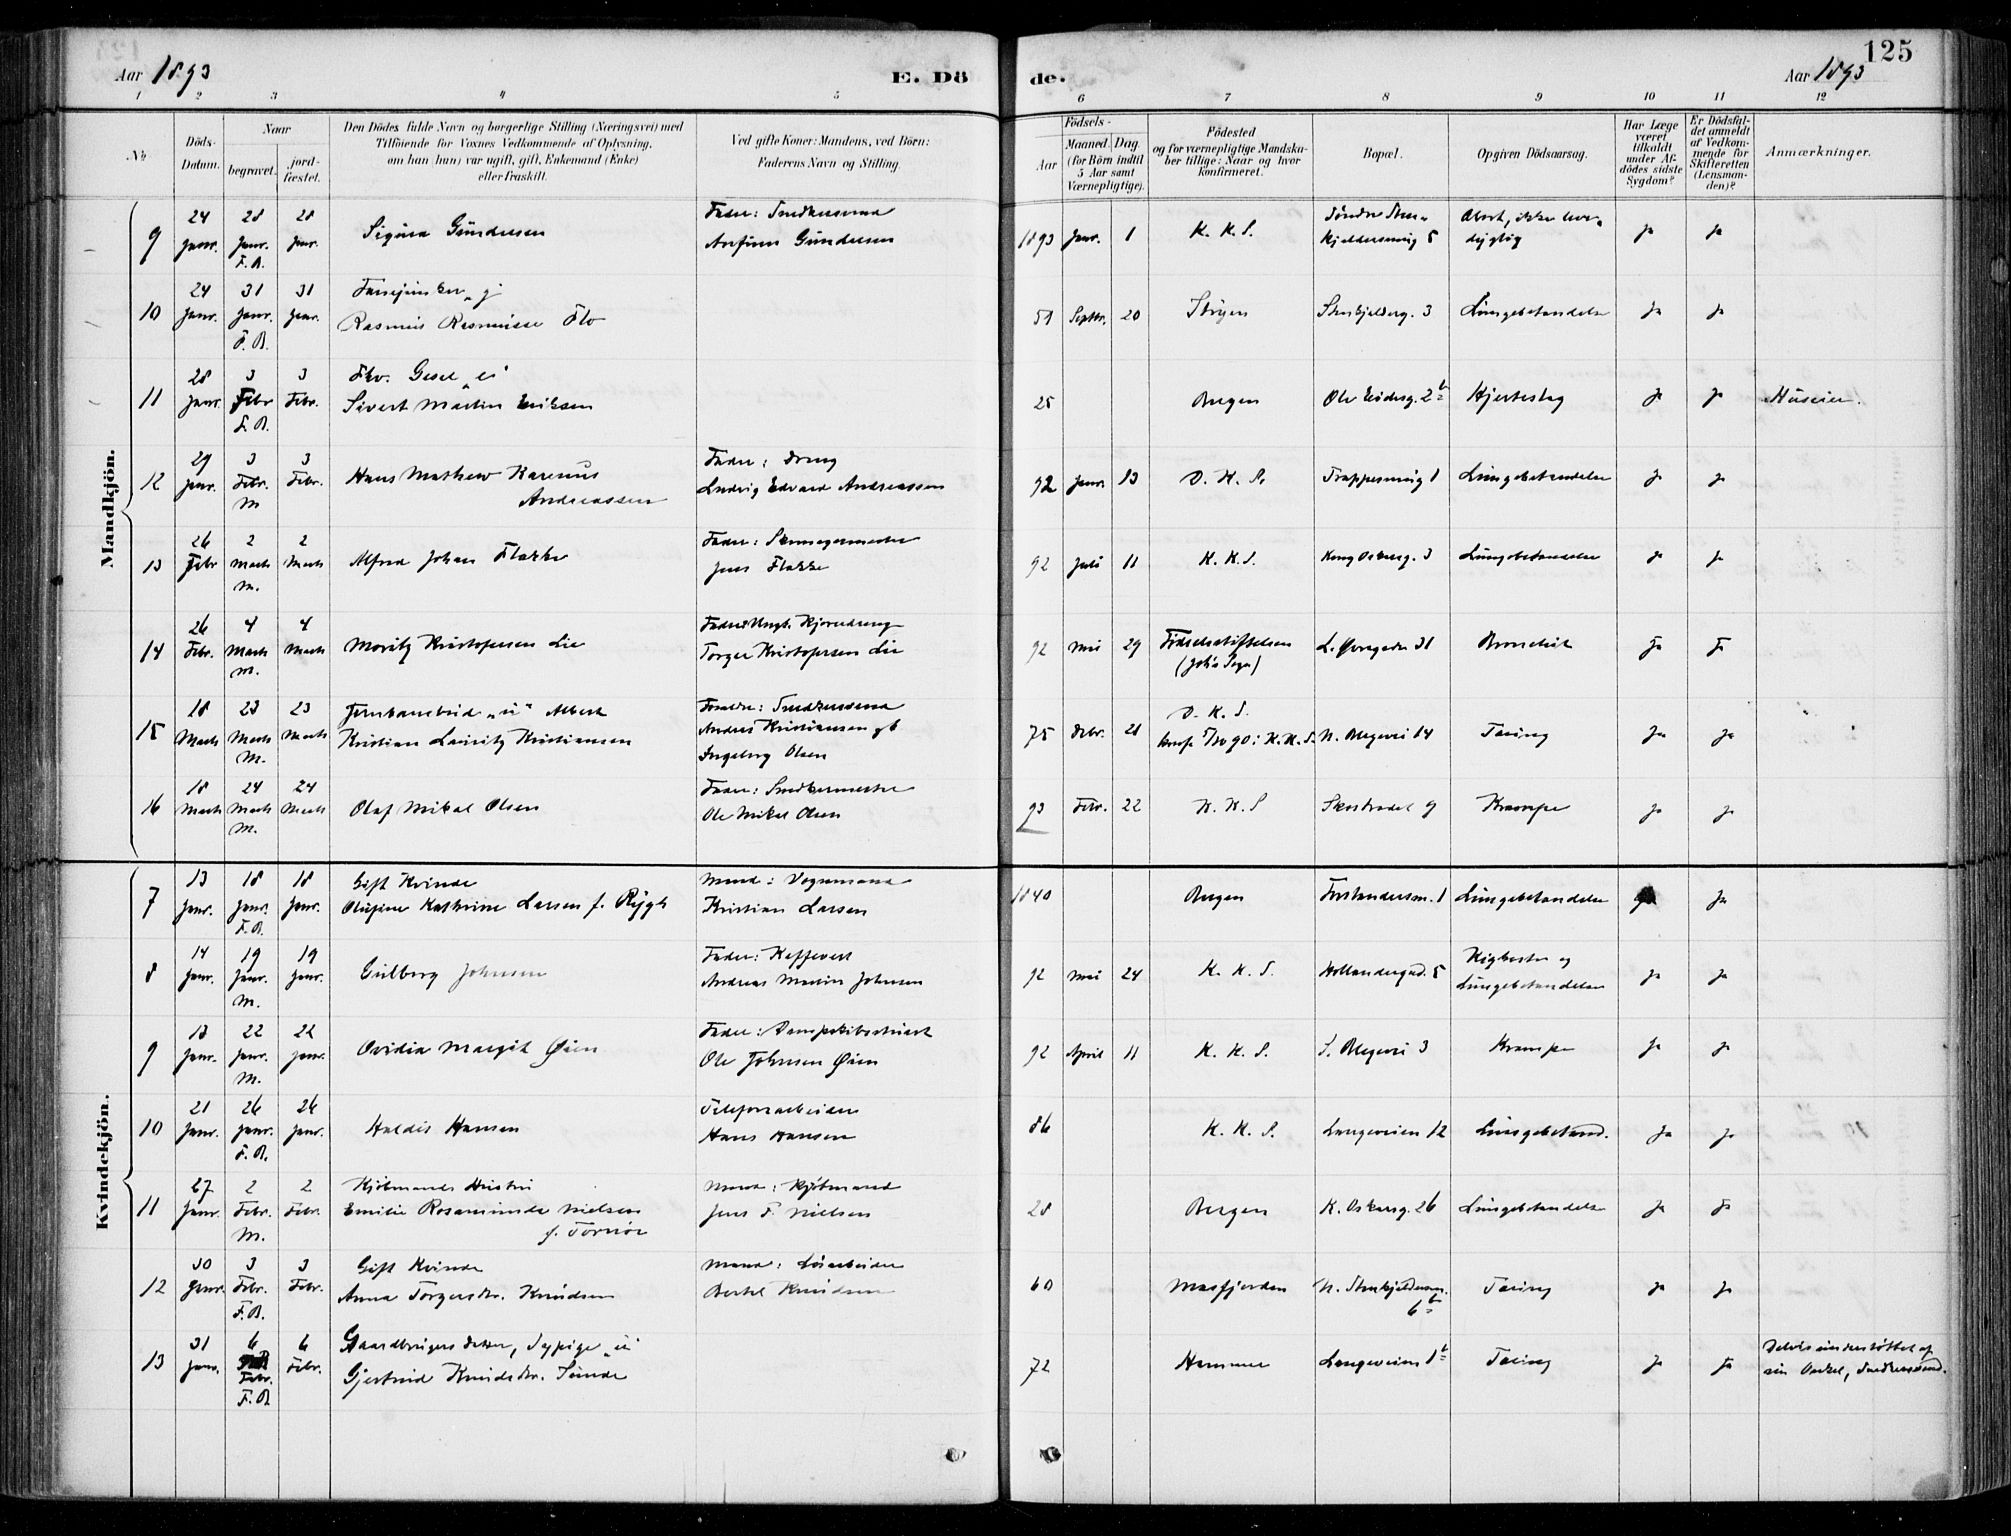 125
Aar 1893
E. Dö
de.
Aar 1893
1 2 3 4 5 6 7 8 9 10 11 12
No
Döds-
Datum.
Naar
begravet.
jord-
fæstet.
Den Dödes fulde Navn og borgerlige Stilling (Næringsvei) med
Tilföiende for Voxnes Vedkommende af Oplysning,
om han (hun) var ugift, gift, Enkemand (Enke)
eller fraskilt.
Ved gifte Koner: Mandens, ved Börn:
Faderens Navn og Stilling.
Födsels-
Aar
Maaned. Dag
(for Börn indtil
5 Aar samt
Værnepligtige).
Födested
og for værnepligtige Mandska-
ber tillige: Naar og hvor
konfirmeret.
Bopæl.
Opgiven Dödsaarsag.
Har Læge
været
tilkaldt
under Af-
dödes sidste
Sygdom?
Er Dödsfal-
det anmeldt
af Vedkom-
mende for
Skifteretten
(Lensman-
den)?
Anmærkninger.
Mandkjön.
9 24 Janr. 28 Janr. F.B. 28 Janr.
Sigurd Gundersen
Fader: Snedkersvend
Arfinn Gundersen
1893 Janr. 1 K. K. S.
Söndre Sten-
kjeldersmug 5
Abort, ikke leve-
dygtig
ja ja
10 24 Janr. 31 Janr. F.B. 31 Janr.
Rasmus Rasmusse Flo
51 Septbr. 20 Stryen Stenkjelderg. 3 Lungebetændelse ja ja
11 28 Janr. 3 Febr F.B. 3 Febr.
Sivert Martin Eriksen
25 Bergen Hjerteslag ja ja Huseier.
12 29 Janr. 3 Febr. M 3 Febr.
Hans Mathew Karenus
Andreassen
Fader: Dreng
Ludvig Edvard Andreassen
92 Janr. 13 D. K. S. Trappesmug 1 Lungebetændelse ja ja
13 26 Febr 2 Marts M. 2 Marts
Alfred Johan Flakke
Fader:
Jens Flakke
92 Juli 11 K. K. S. Kong Oskarsg. 3 Lungebetændelse ja ja
14 26 Febr. 4 Marts M. 4 Marts
Moritz Kristofersen Lie
Torger Kristofersen Lie
92 Mai 29 Födselsstiftelsen L. Övregaden 31 Bronchit ja ja
15 18 Marts 23 Marts M. 23 Marts
Albert
Kristian Lauritz Kristiansen
Forældre: Snedkersvend
Anders Kristiansen og
Ingeborg Olsen
75 Febr. 21 D. K. S.
90: K. K. S. N. Blegevei 14 Tæring ja ja
16 18 Marts 24 Marts M. 24 Marts
Olaf Mikal Olsen
Fader: Snedkermester
Ole Mikal Olsen
93 Febr. 22 K. K. S Skostredet 9 Krampe ja ja
Kvindekjön.
7 13 Janr. 18 Janr. F.B. 18 Janr.
Gift Kvinde
Olufine Kathrine Larsen f. Rygh
Mand: Vognmand
Kristian Larsen
1840 Bergen Forstandersm. 1 Lungebetændelse ja ja
8 14 Janr. 19 Janr. M. 19 Janr.
Gulborg Johnsen
Fader: Kaffevert
Andreas Martin Johnsen
92 Mai 24 K. K. S. Hollandergad. 5
Kighoste og
Lungebetændelse
ja ja
9 13 Janr. 22 Janr. M. 22 Janr.
Ovidia Margit Öien
Fader: Dampskibsstuert
Ole Johnsen Öien
92 April 11 K. K. S. S. Blegevei 3 Krampe ja ja
10 21 Janr. 26 Janr. F.B. 26 Janr.
Haldis Hansen
Telefonarbeider
Hans Hansen
86 K. K. S. Langeveien 12 Lungebetænd. ja ja
11 27 Janr. 2 Febr. M. 2 Febr.
Kjöbmands Hustru
Emilie Rosamunde Nielsen
f. Tornöe
Mand: Kjöbmand
Jens F. Nielsen
28 Bergen K. Oskarsg. 26 Lungebetændelse ja ja
12 30 Janr. 3 Febr. F.B. 3 Febr.
Gift Kvinde
Anna Torgersdtr. Knudsen
Mand: Lösarbeider
Bertel Knudsen
60 Masfjorden N. Stenkjeldersm. 6 b Tæring ja ja
13 31 Janr. 6 Febr. F.B 6 Febr.
Gaardbrugers Datter, Sypige "u"
Gjertrud Knudsdtr. Sunde
72 Hammer Langeveien 1 b Tæring ja ja
Delvis understöttet af
sin Onkel, Snedkersvend.